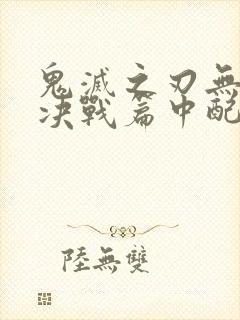 鬼滅之刃無
决戰篇中配
陸無雙